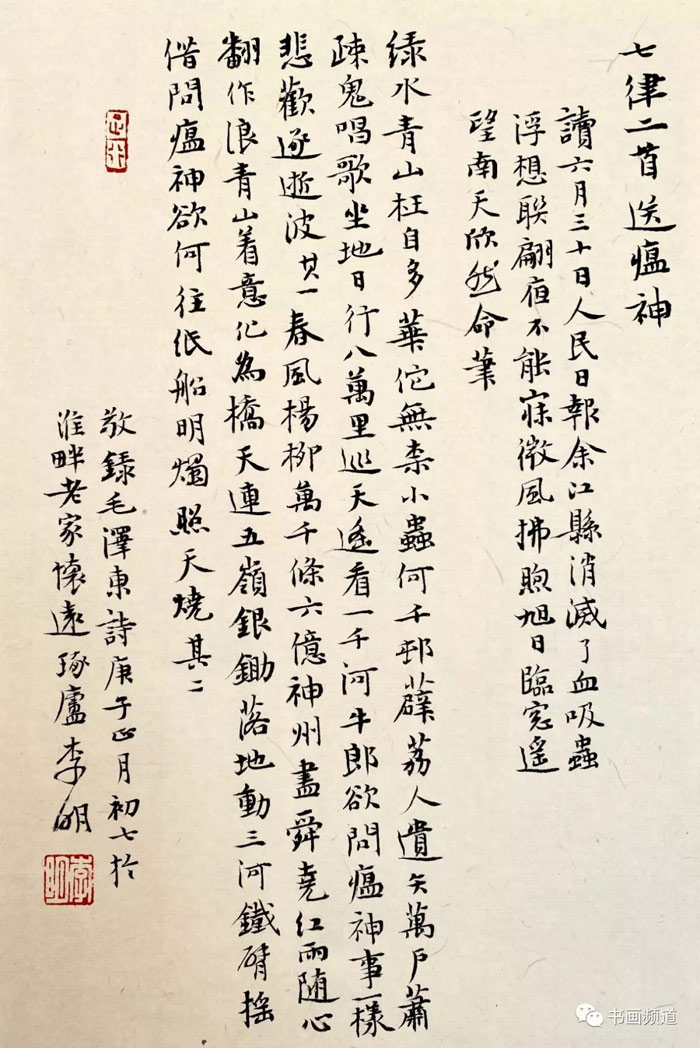 七律二首送瘟神
讀六月三十日人民日報余江縣消滅了血吸蟲
浮想聯翩夜不能寐微風拂煦旭日臨窗遥
望南天欣然命筆
綠水青山枉自多華佗無柰小蟲何千邨薜荔人遺矢萬戶蕭
疎鬼唱歌坐地日行八萬里巡天遥看一千河牛郎欲問瘟神事一樣
悲歡逐逝波其一春風楊柳萬千條六億神州盡舜堯紅雨随心
翻作浪青山着意化為橋天連五嶺銀鋤落地動三河鐵臂摇
借問瘟神欲何往紙船明燭照天燒其二
敬錄毛澤東詩庚子正月初七於
淮畔老家懷遠琢廬李明
李明
书画频道